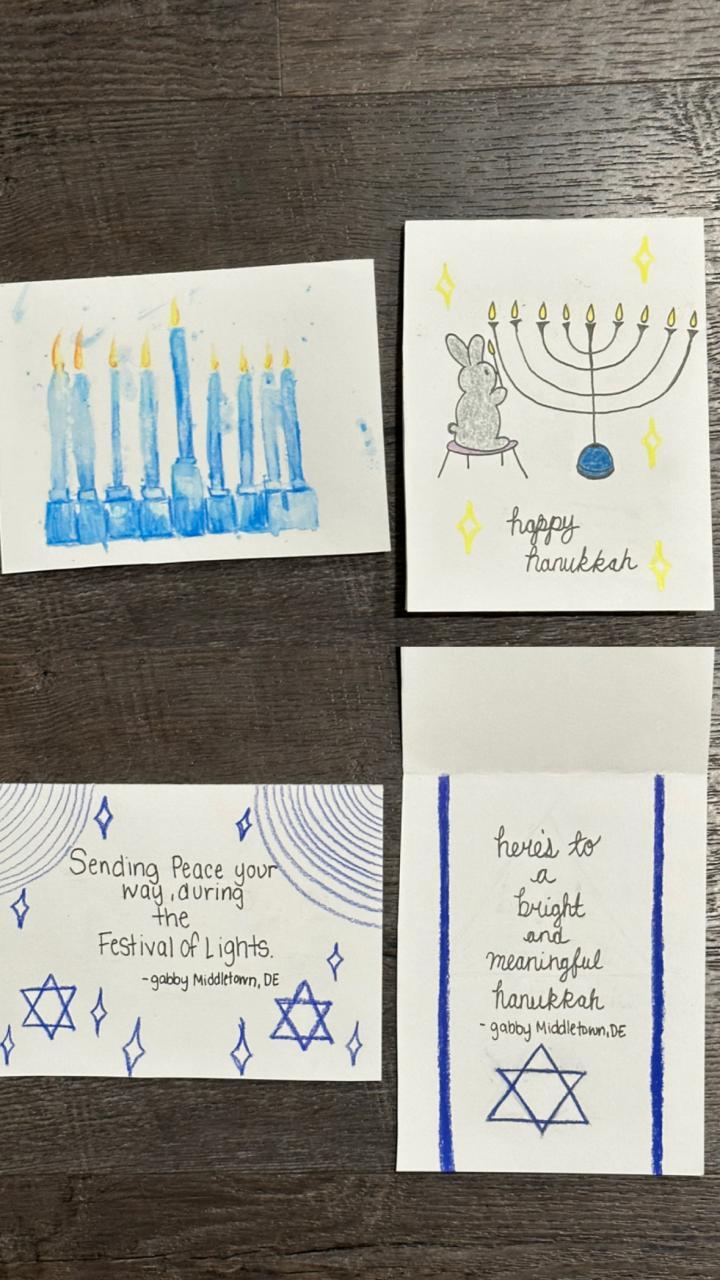 happy
hanukkah
Sending Peace your
way, during
the
Festival of Lights.
-gabby Middletown, DE
here's to
a
bright
and
meaningful
hanukkah
- gabby Middletown, DE